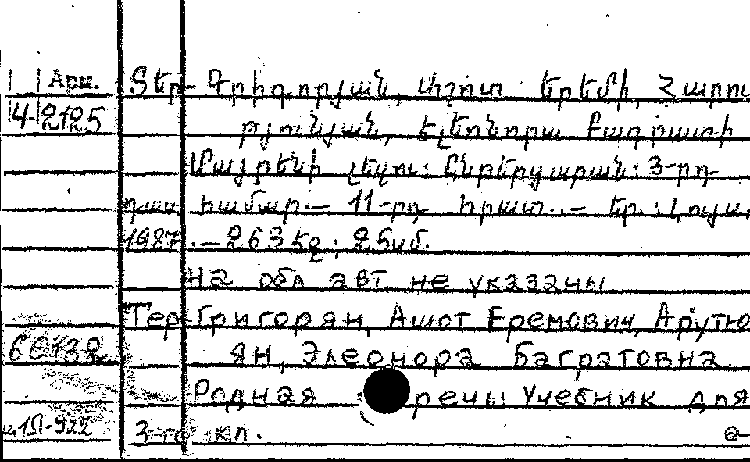 Арм. Տեր-Գրիգորյան, Աշոտ Երեմի, Հարու
14-2125 թյունյան, Էլեոնորա Բագրատի
Մայրենի լեզու: Ընթերցարան: 3-րդ
դաս. համար.— 11-րդ հրատ.— Եր.: Լույս,
1987.— 263 էջ; 25սմ.
На обл авт не указаны
Тер-Григорян, Ашот Еремович, Арутю
60132 ян, Элеонора Багратовна
Родная речь: Учебник для
3-го кл.